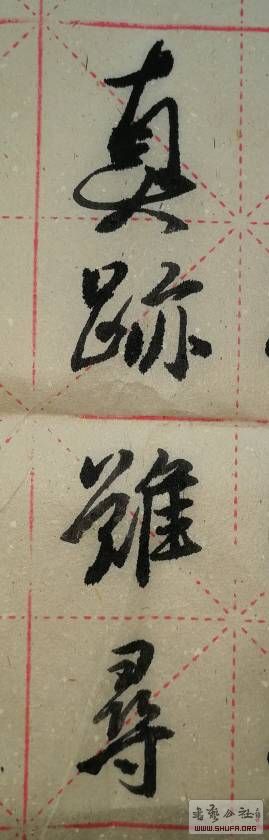 真跡難尋
書法公社
WWW.SHUFA.ORG